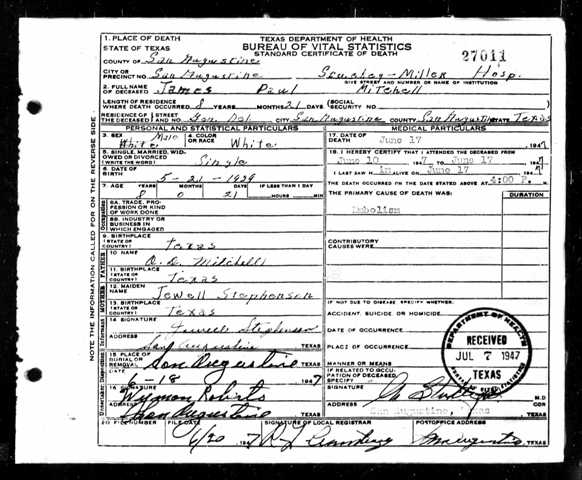 TEXAS DEPARTMENT OF HEALTH
BUREAU OF VITAL STATISTICS
STANDARD CERTIFICATE OF DEATH
27011
1. PLACE OF DEATH
STATE OF TEXAS
COUNTY OF San Augustine
CITY OR PRECINCT NO. San Augustine Hosp.
GIVE STREET AND NUMBER OR NAME OF INSTITUTION
2. FULL NAME OF DECEASED James Paul Mitchell
LENGTH OF RESIDENCE WHERE DEATH OCCURRED 8 YEARS MONTHS 21 DAYS (SOCIAL SECURITY NO.
RESIDENCE OF THE DECEASED STREET AND NO. Gen Del CITY San Augustine COUNTY San Augustine STATE Texas
PERSONAL AND STATISTICAL PARTICULARS
3. SEX Male White
4. COLOR OR RACE White
5. SINGLE, MARRIED, WIDOWED OR DIVORCED (WRITE THE WORD) Single
6. DATE OF BIRTH 5-21-1929
7. AGE YEARS MONTHS DAYS IF LESS THAN 1 DAY
8 0 21 HOURS MIN.
8A. TRADE, PROFESSION OR KIND OF WORK DONE
8B. INDUSTRY OR BUSINESS IN WHICH ENGAGED
9. BIRTHPLACE (STATE OR COUNTRY) Texas
10. NAME Mitchell
11. BIRTHPLACE (STATE OR COUNTRY) Texas
12. MAIDEN NAME Jewell Stephenson
13. BIRTHPLACE (STATE OR COUNTRY) Texas
14. SIGNATURE
ADDRESS San Augustine TEXAS
15. PLACE OF BURIAL OR REMOVAL San Augustine TEXAS
DATE 6-18 1947
16. SIGNATURE Wyman Roberts
ADDRESS San Augustine TEXAS
MEDICAL PARTICULARS
17. DATE OF DEATH June 17 1947
18. I HEREBY CERTIFY THAT I ATTENDED THE DECEASED FROM
June 10 1947 TO June 17 1947
I LAST SAW H im ALIVE ON June 17 1947
THE DEATH OCCURRED ON THE DATE STATED ABOVE AT 4:00 P. M.
THE PRIMARY CAUSE OF DEATH WAS: DURATION
Embolism
CONTRIBUTORY CAUSES WERE:
IF NOT DUE TO DISEASE, SPECIFY WHETHER:
ACCIDENT, SUICIDE OR HOMICIDE
DATE OF OCCURRENCE
PLACE OF OCCURRENCE
MANNER OR MEANS
IF RELATED TO OCCUPATION OF DECEASED SPECIFY
SIGNATURE M.D.
ADDRESS San Augustine, Texas TEXAS
20. FILE NUMBER FILE DATE SIGNATURE OF LOCAL REGISTRAR POSTOFFICE ADDRESS
6/20 1947 TEXAS
DEPARTMENT OF HEALTH
RECEIVED
JUL 7 1947
TEXAS
Occupation
FATHER
MOTHER
Informant
NOTE THE INFORMATION CALLED FOR ON THE REVERSE SIDE